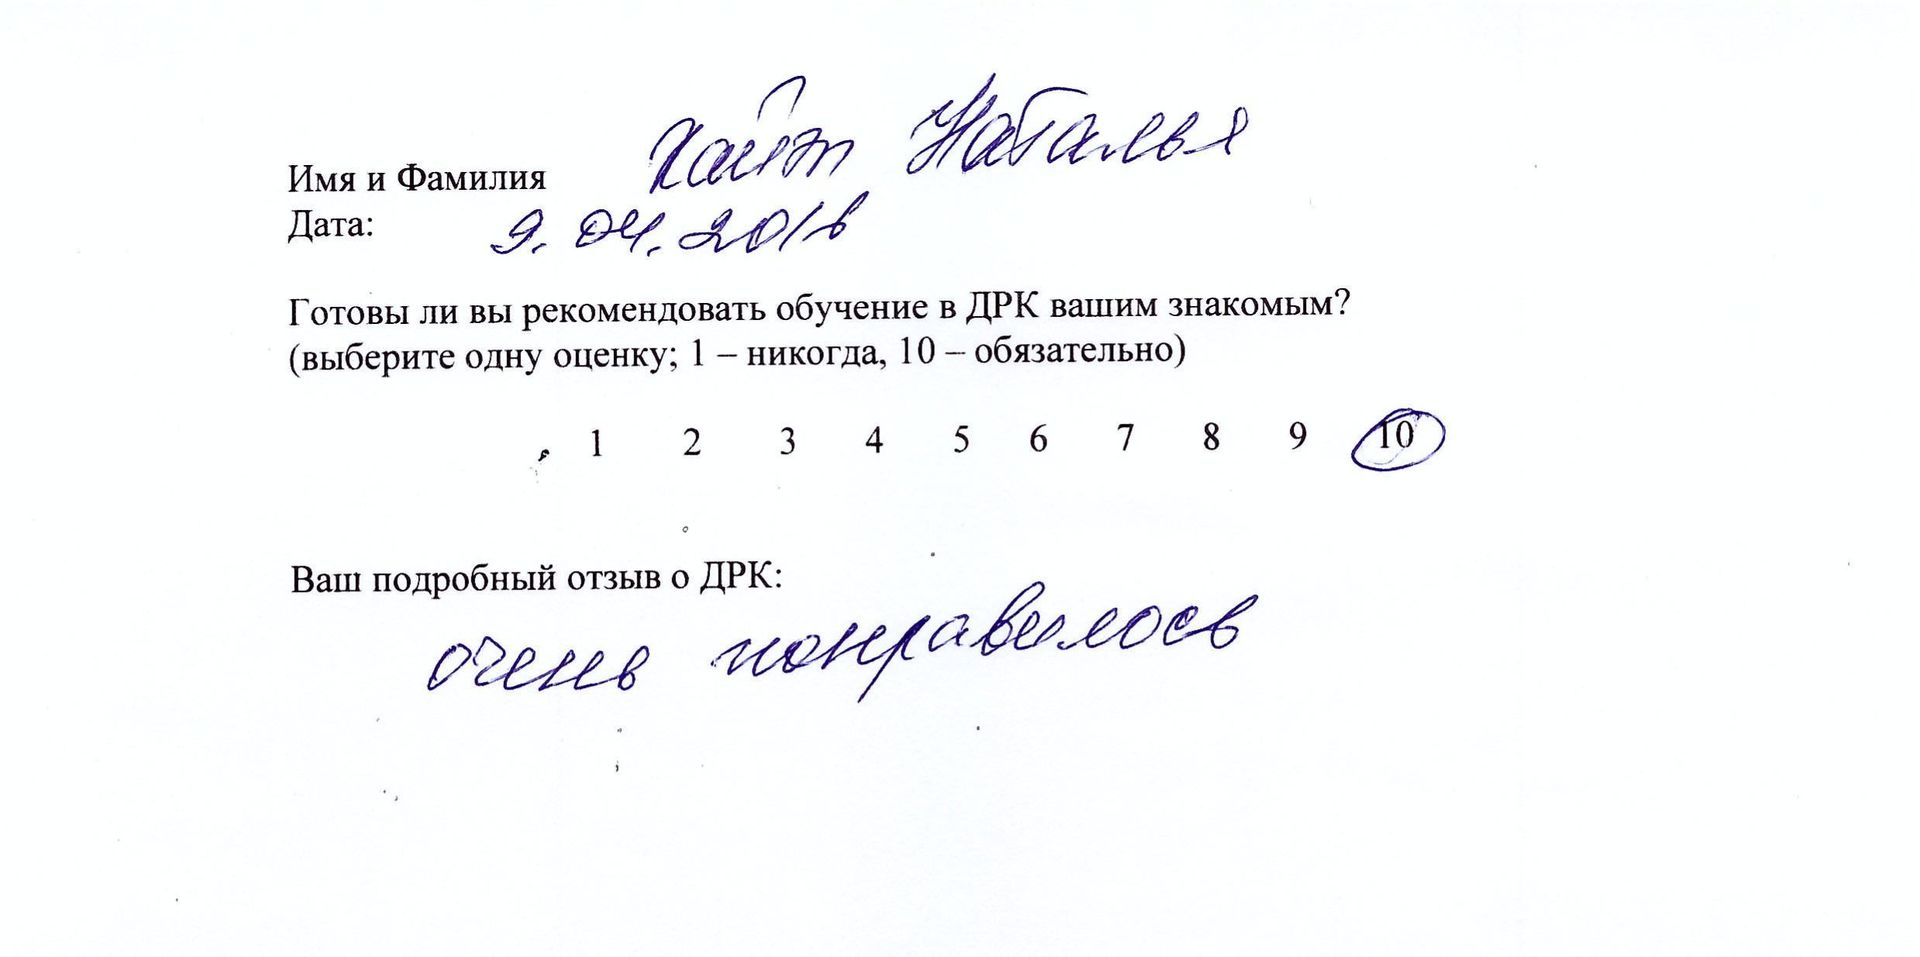 Имя и Фамилия Хайт Наталья
Дата: 9.04.2016
Готовы ли вы рекомендовать обучение в ДРК вашим знакомым?
(выберите одну оценку; 1 – никогда, 10 – обязательно)
1 2 3 4 5 6 7 8 9 10
Ваш подробный отзыв о ДРК:
очень понравилось